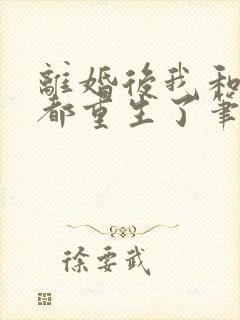 離婚後我和
都重生了筆
徐要武